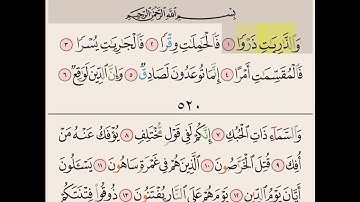 بِسْمِ اللَّهِ الرَّحْمَٰنِ الرَّحِيمِ
وَالذَّارِيَاتِ ذَرْوًا ١ فَالْحَامِلَاتِ وِقْرًا ٢ فَالْجَارِيَاتِ يُسْرًا ٣
فَالْمُقَسِّمَاتِ أَمْرًا ٤ إِنَّمَا تُوعَدُونَ لَصَادِقٌ ٥ وَإِنَّ الدِّينَ لَوَاقِعٌ ٦
٥٢٠
وَالسَّمَاءِ ذَاتِ الْحُبُكِ ٧ إِنَّكُمْ لَفِي قَوْلٍ مُّخْتَلِفٍ ٨ يُؤْفَكُ عَنْهُ مَنْ
أُفِكَ ٩ قُتِلَ الْخَرَّاصُونَ ١٠ الَّذِينَ هُمْ فِي غَمْرَةٍ سَاهُونَ ١١ يَسْأَلُونَ
أَيَّانَ يَوْمُ الدِّينِ ١٢ يَوْمَ هُمْ عَلَى النَّارِ يُفْتَنُونَ ١٣ ذُوقُوا فِتْنَتَكُمْ